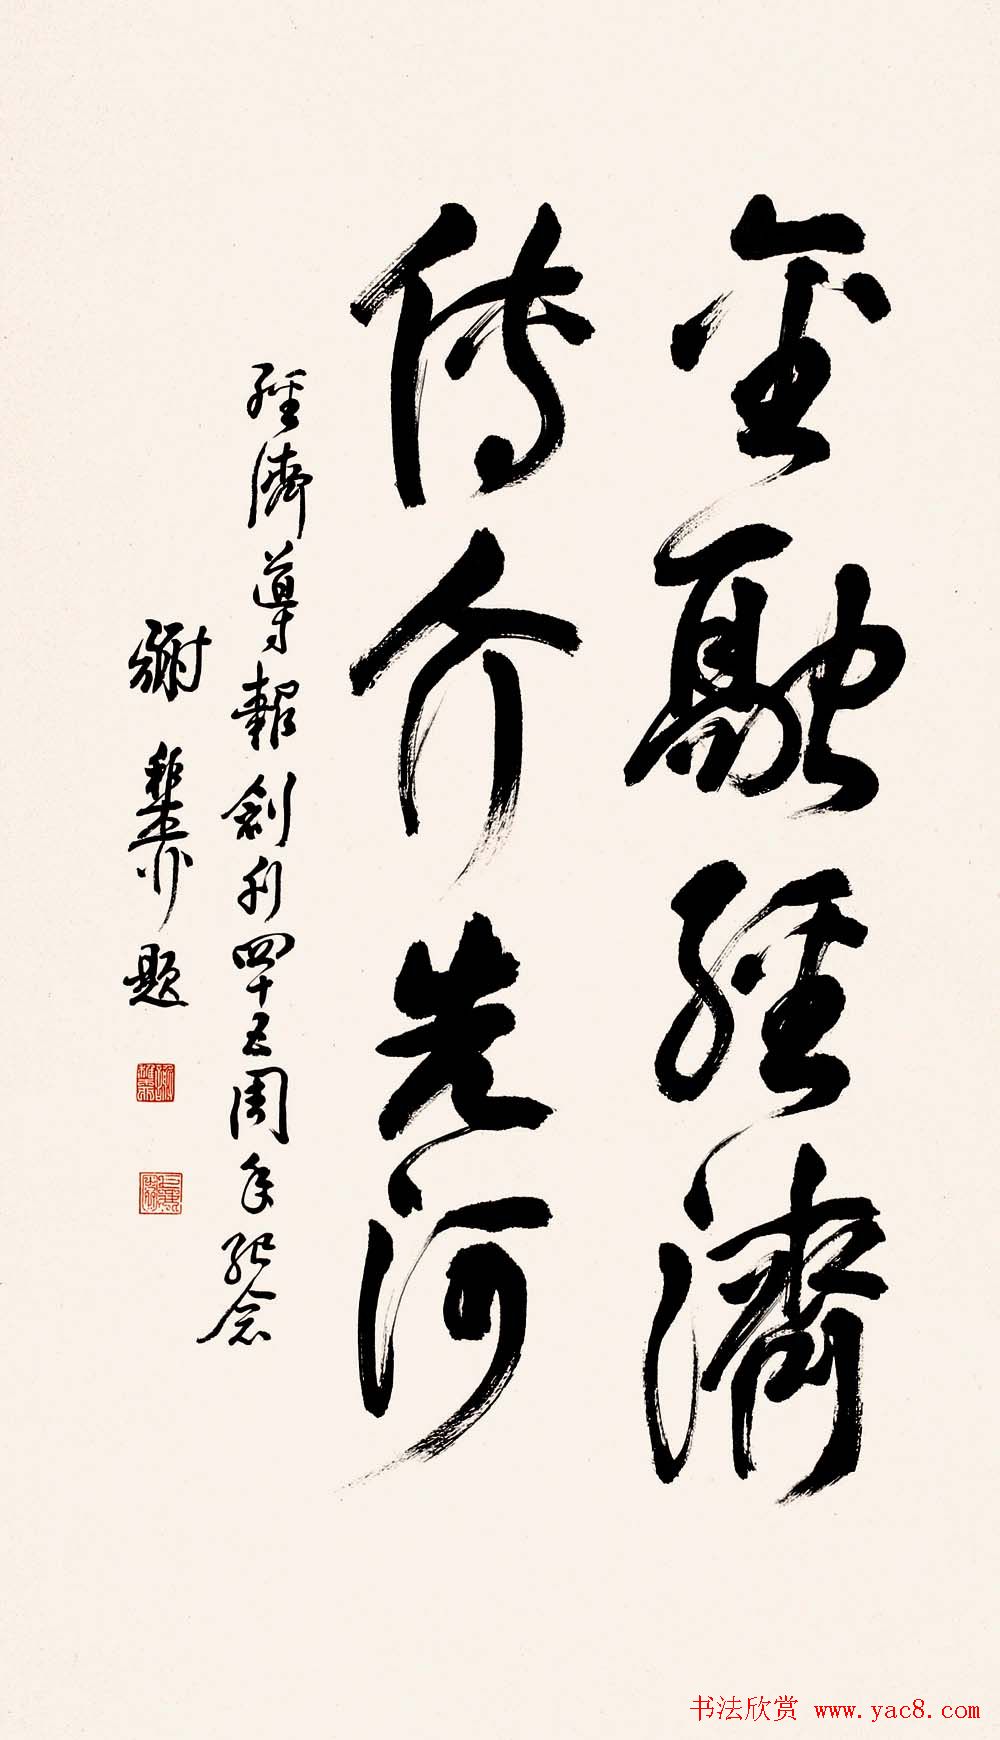 金融經濟
傳介先河
經濟導報創刊四十五周年紀念
謝稚柳題
书法欣赏 www.yac8.com